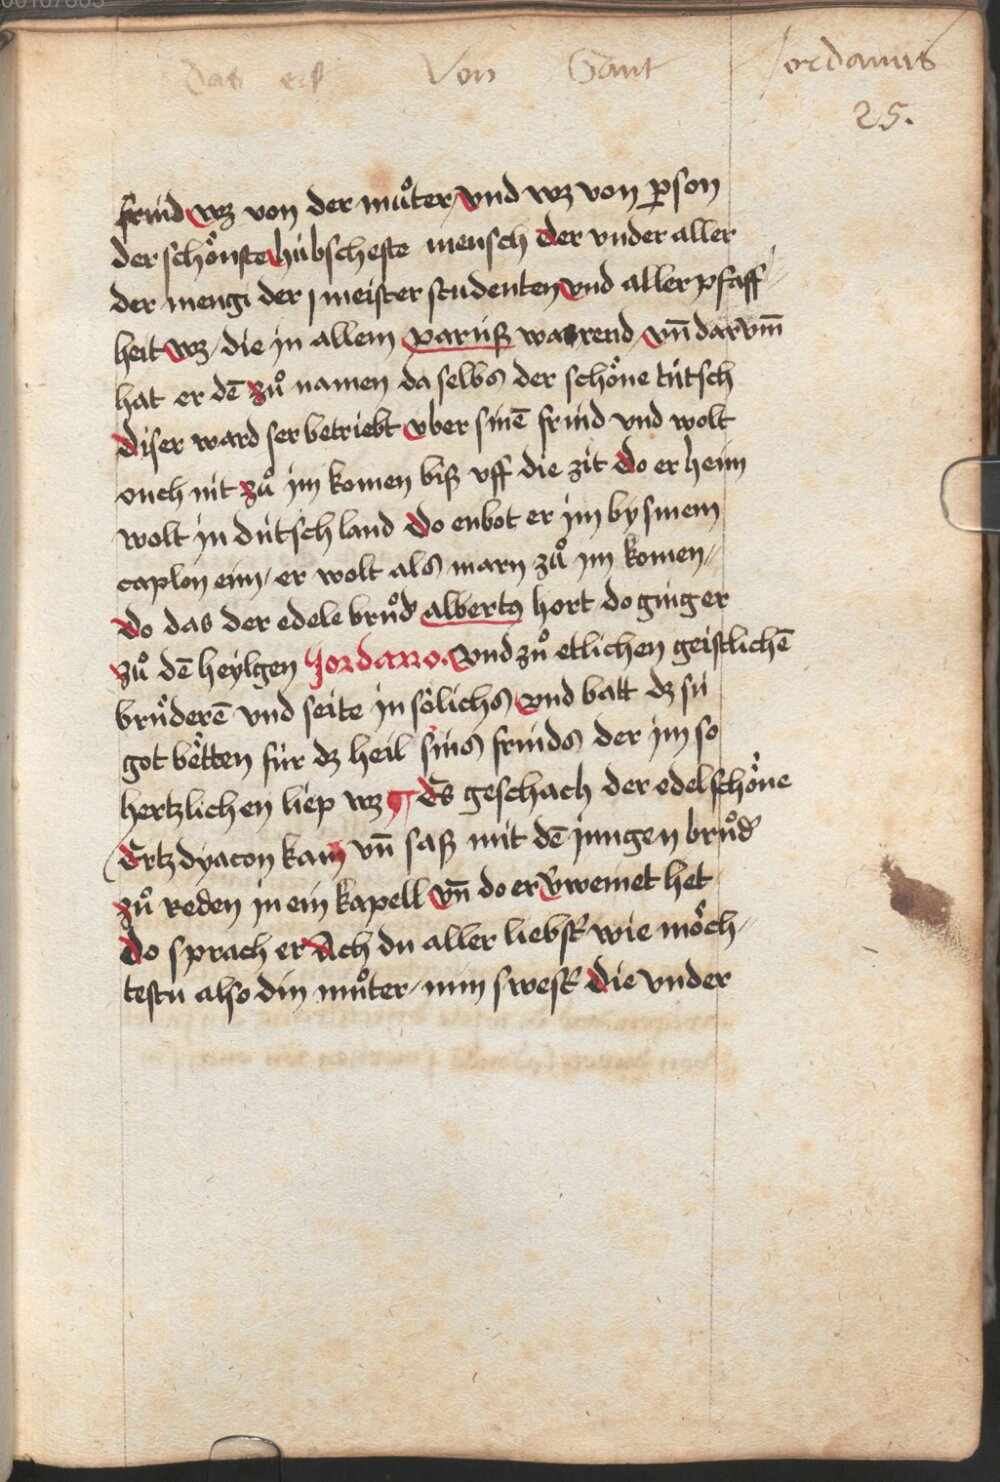 Das erst Von Sant Jordanus
25.
frúid wz von der můter / vnd wz von p̱son
der schönste húbscheste mensch der vnder aller
der mengi der meister studenten vnd aller pfaff
heit wz / die jn allem paruß warend / vn̄ darvm̄
hat er dē zů namen da selbs der schöne tútsch
diser ward ser betriebt vber sinē frúid vnd wolt
ouch nit zů jm komen biß vff die zit do er heim
wolt jn dútsch land do enbot er jm by sinem
caplon eim / er wolt als marn zů jm komen /
do das der edele brůd͛ albert⁹ hort do ging er
zů dē heylgen Jordano. vnd zů etlichen geistlichē
brúderē vnd seite jn sölichs vnd batt dz sú
got bëtten fúr dz heil sins frúids der jm so
hertzlichen liep wz ¶ Es geschach der edel schöne
Ertzdyacon kam vn̄ saß mit dē jungen brůd͛
zů reden jn ein kapell vn̄ do er v͛wemet het
do sprach er Ach du aller liebst͛ wie möch /
testu also din můter / min swest͛ die vnder